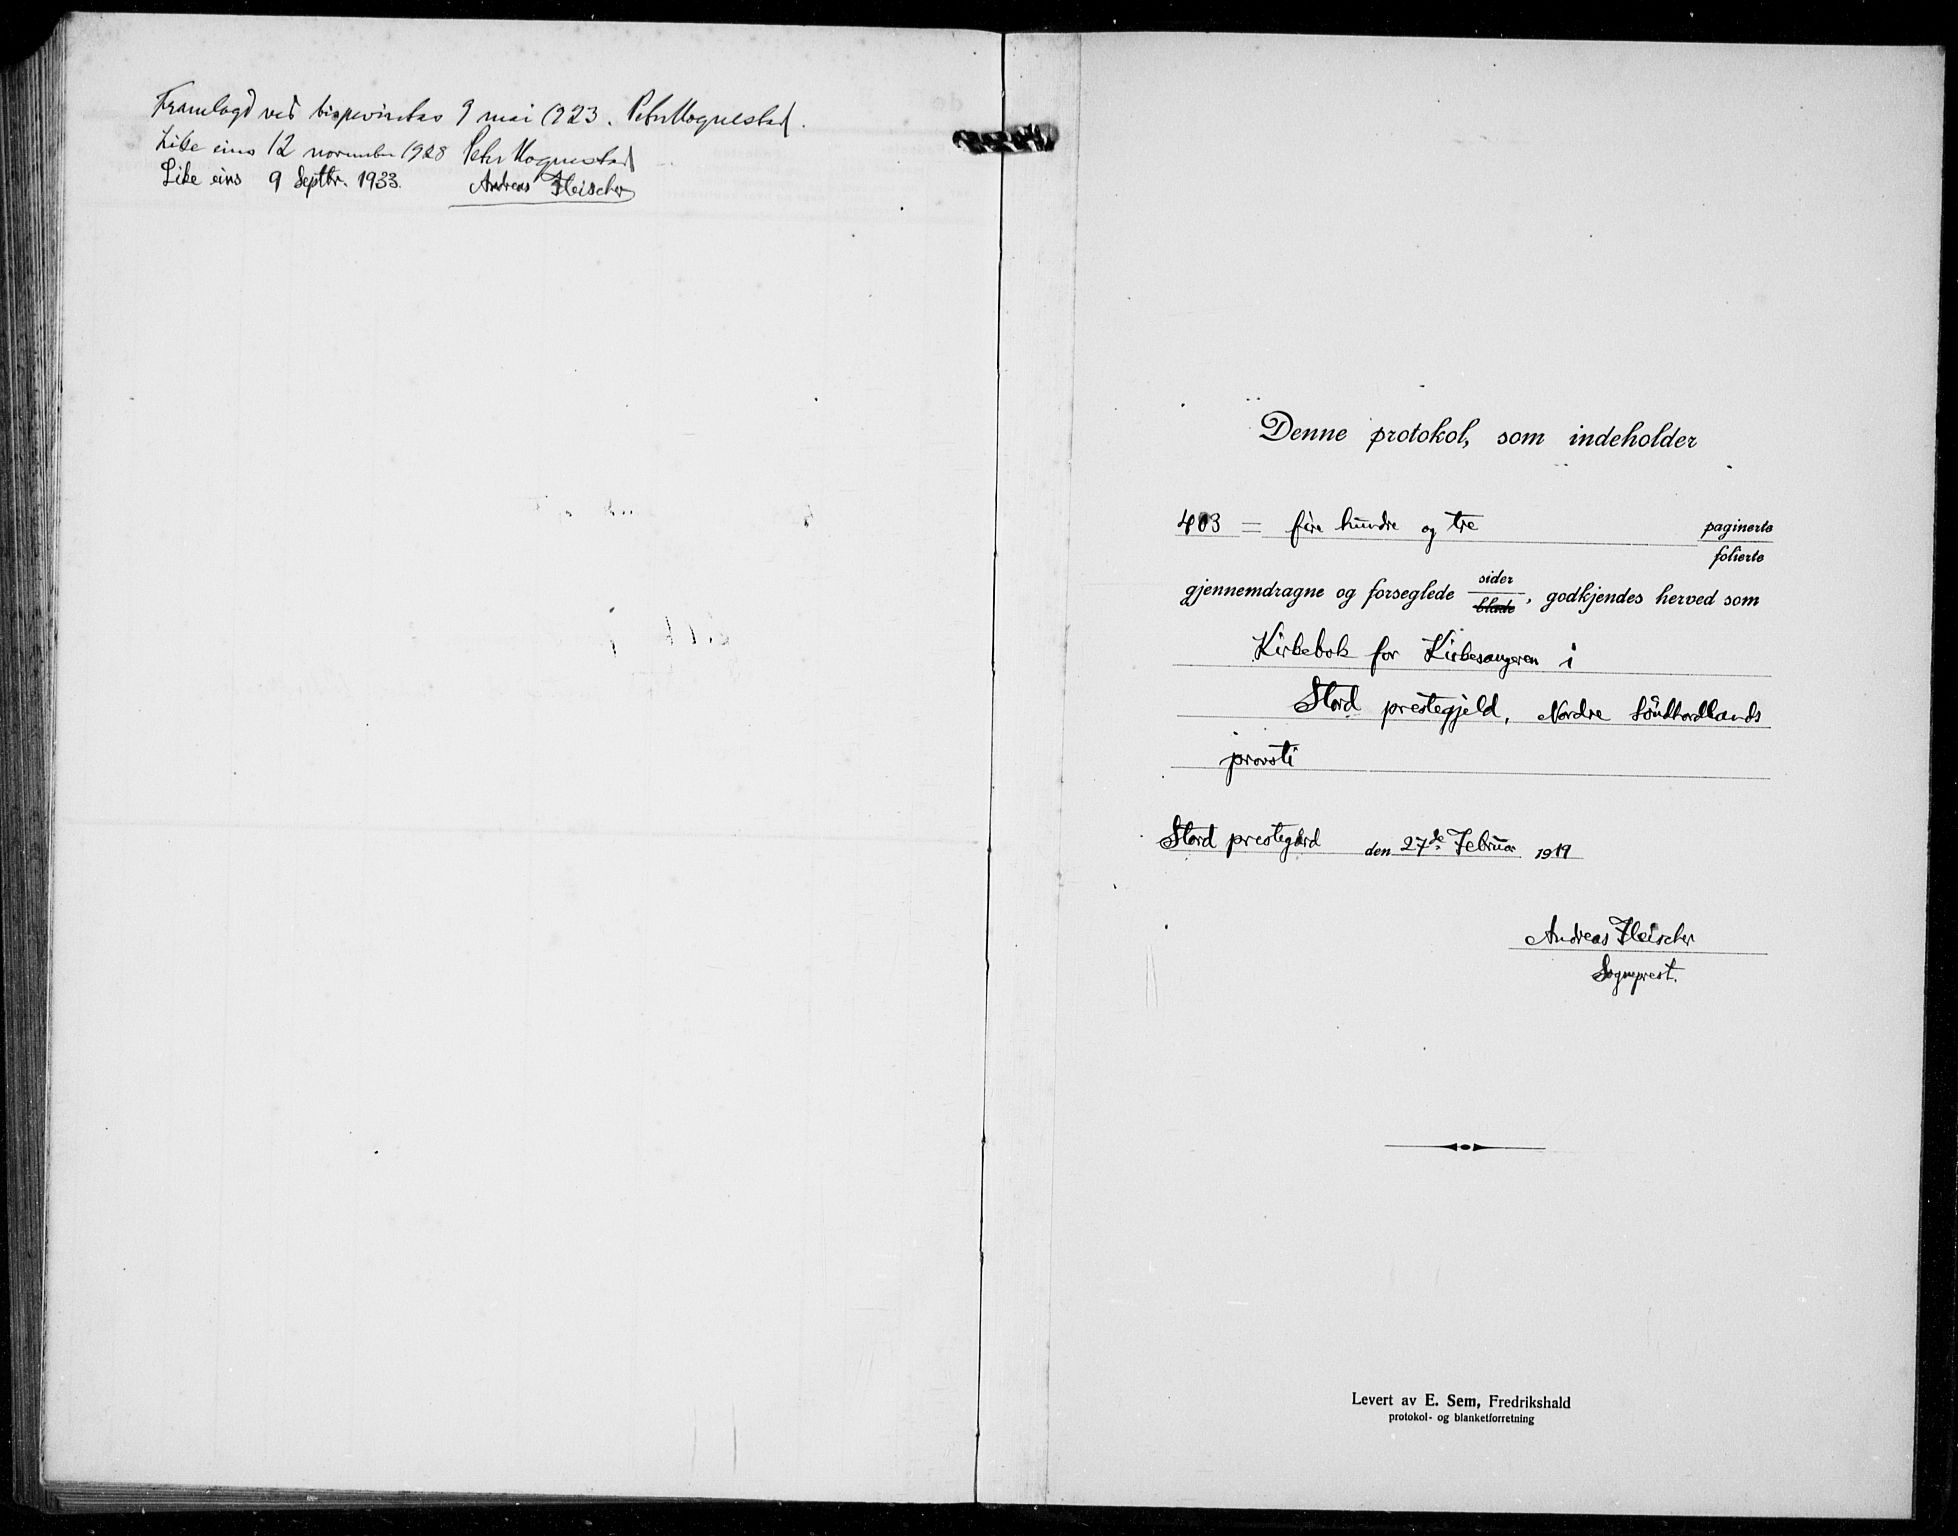 Framlagd ved bispevisitas 9 mai 1923. Peter Hognestad.
Like eins 12 november 1928 Peter Hognestad
Like eins 9 Septbr. 1933. Andreas Fleischer
Denne protokol, som indeholder
403 = fire hundre og tre paginerte
folierte
sider
gjennemdragne og forseglede blade, godkjendes herved som
Kirkebok for Kirkesangeren i
Stord prestegjeld, Nordre Söndhordlands
provsti
Stord prestegård den 27de Februar 1919
Andreas Fleischer
Sogneprest.
Levert av E. Sem, Fredrikshald
protokol- og blanketforretning